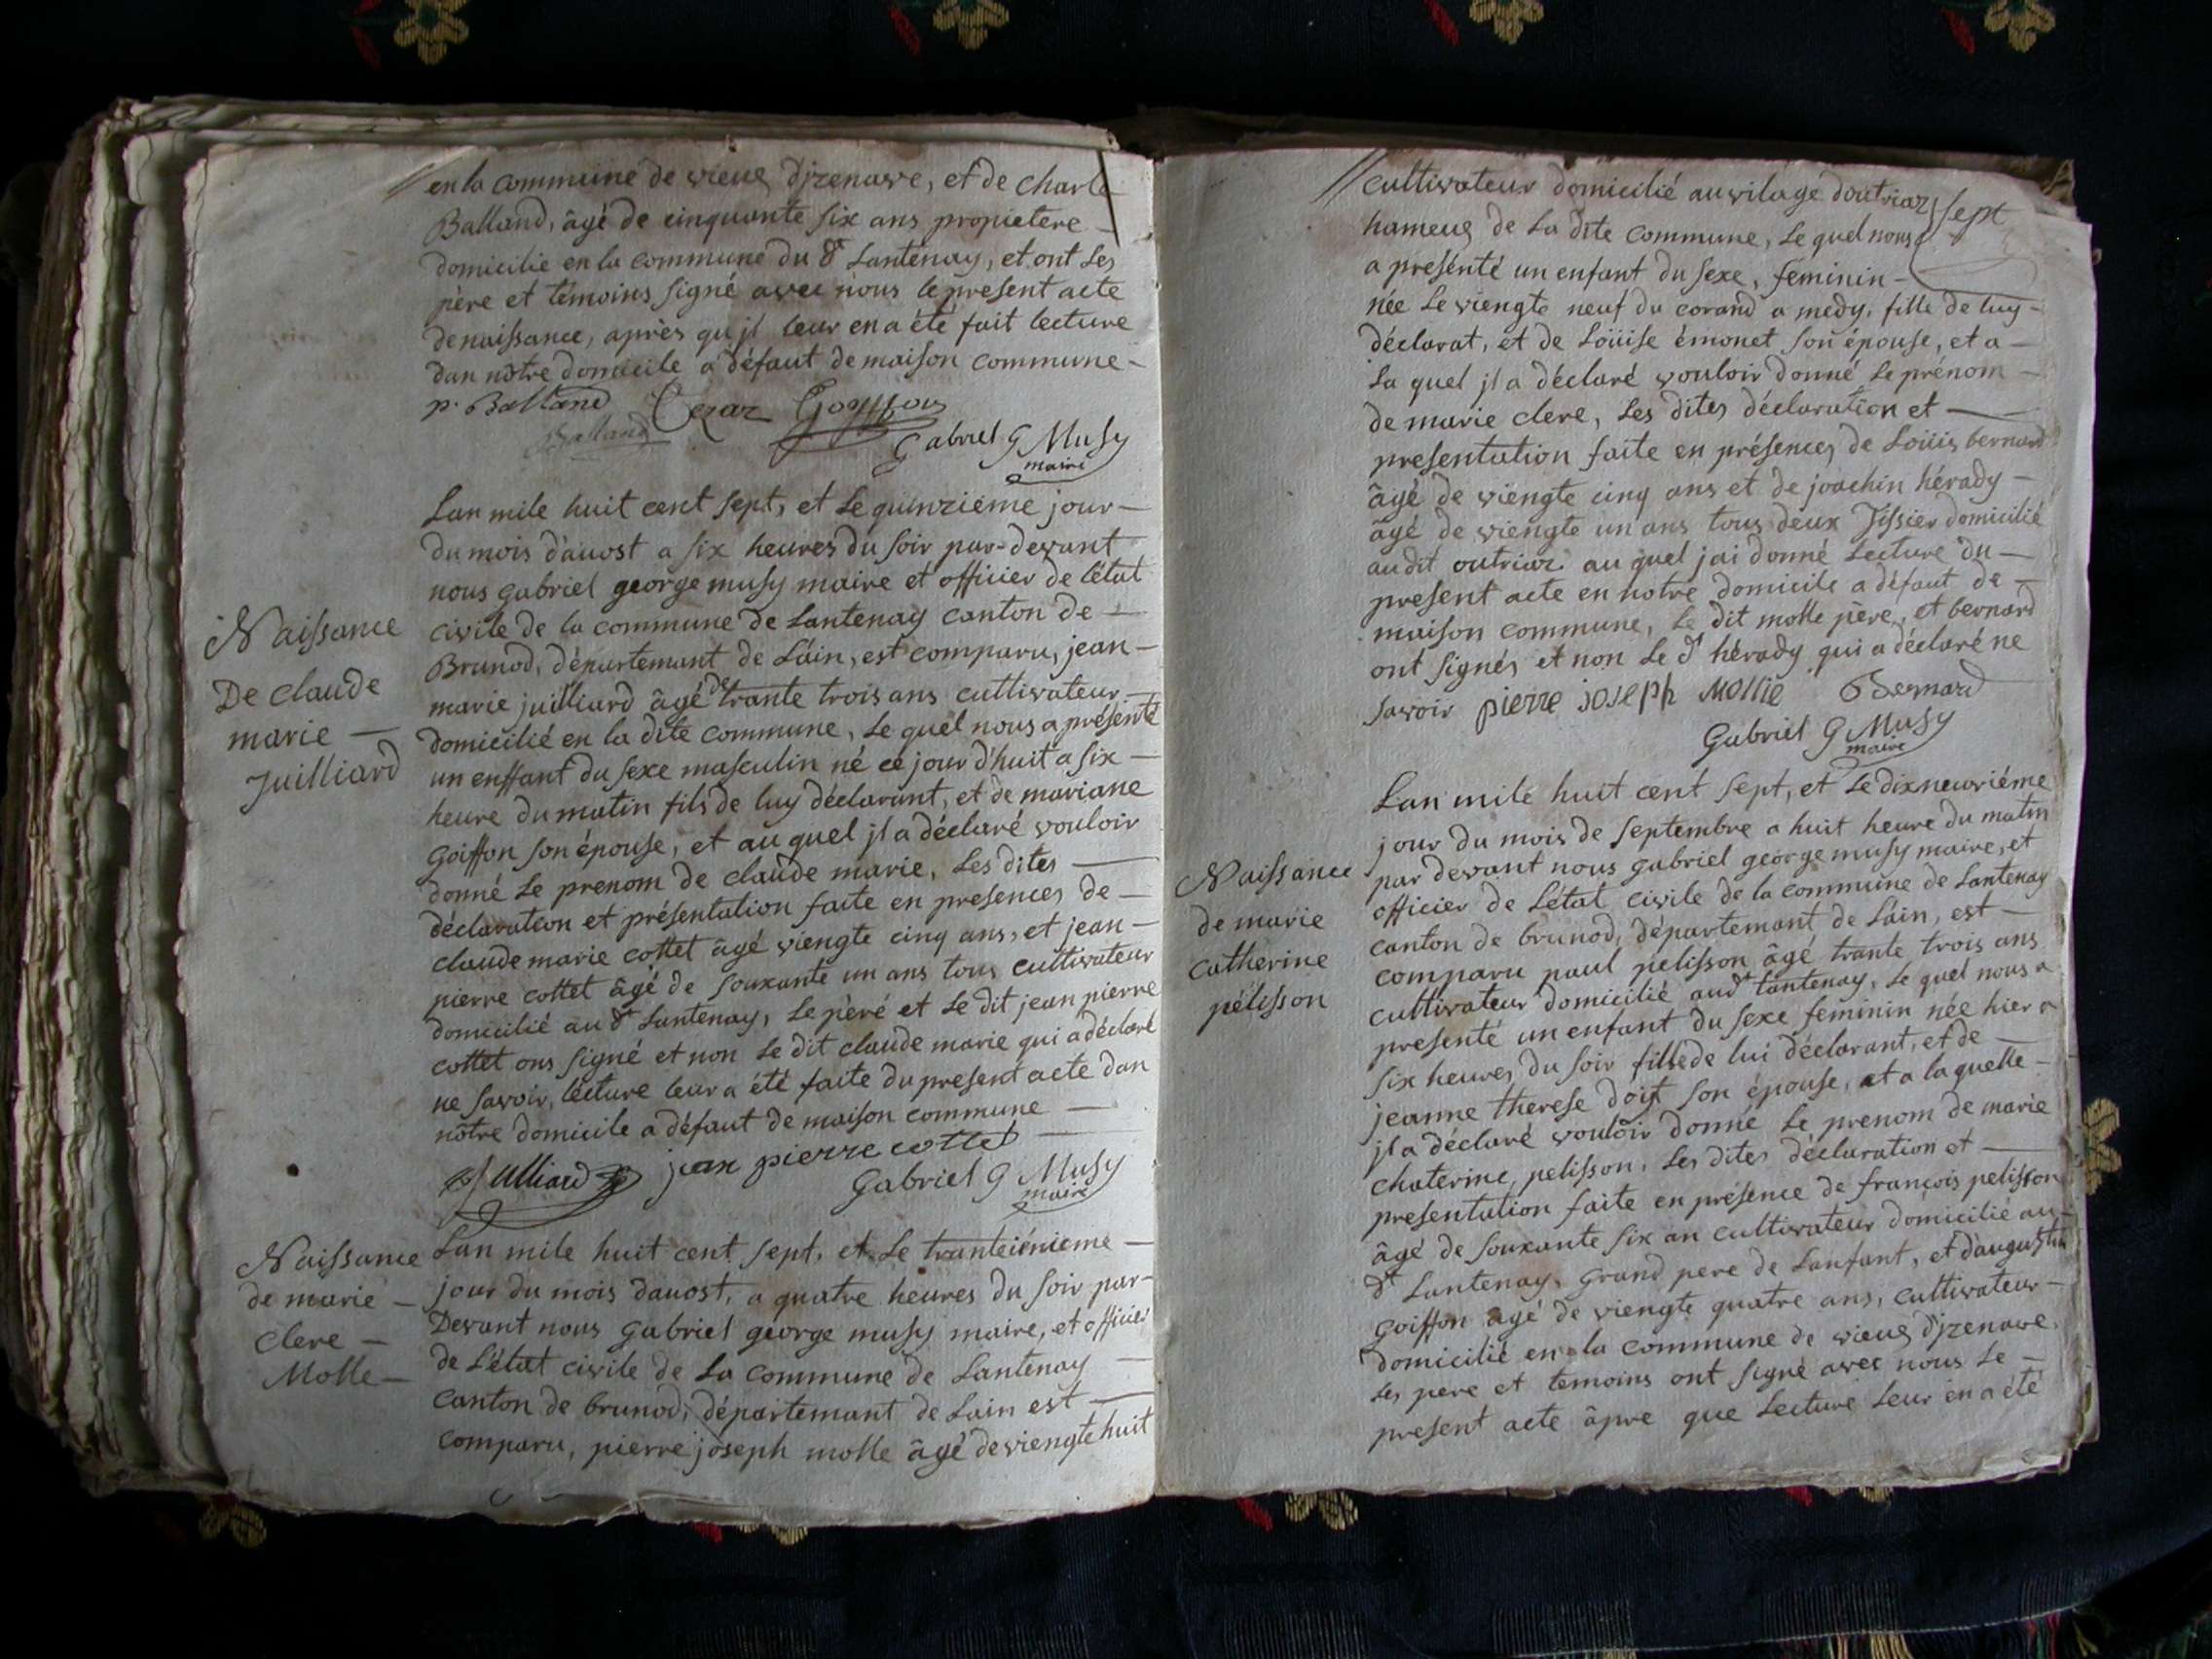 en la commune de vieux djzenave, et de charle
Balland, âgé de cinquante six ans propietere
domicilié en la commune du dt Lantenay, et ont Les
père et témoins signé avec nous le present acte
de naissance, après qu'jl leur en a été fait lecture
dan nôtre domicile a défaut de maison commune -
p. Balland Cezar Goyffon
Balland
Gabriel G Musy
maire
Lan mile huit cent sept, et Le quinziéme jour -
du mois d'auost a six heures du soir par-devant
nous gabriel george musy maire et officier de l'état
civile de la commune de Lantenay canton de -
Brunod, département de Láin, est comparu, jean -
marie juilliard âgé de trante trois ans cultivateur -
domicilié en la dite commune, Le quel nous a présenté
un enffant du sexe masculin né ce jour d'huit a six -
heure du matin fils de luy déclarant, et de mariane
goiffon son épouse, et au quel jl a déclaré vouloir
donné Le prenom de claude marie, Les dites -
déclaration et présentation faite en presences de -
claude marie cottet âgé viengte cinq ans, et jean -
pierre cottet âgé de souxante un ans tous cultivateur
domicilié au dt Lantenay, Le pèré et Le dit jean pierre
cottet ons signé et non Le dit claude marie qui a déclaré
ne savoir, lécture leur a été faite du present acte dan
nôtre domicile a défaut de maison commune -
Julliard jean pierre cottet
Gabriel G Musy
maire
Naissance
De claude
marie -
Juilliard
Naissance
de marie -
clere -
Molle -
Lan mile huit cent sept, et Le tranteiénieme -
jour du mois dauost, a quatre heures du soir par-
Devant nous gabriel géorge musy maire, et officier
de L'état civile de La commune de Lantenay -
canton de brunod, départemant de Lain est -
comparu, pierre joseph molle âgé de viengte huit
cultivateur domicilié au vilage doutriaz sept
hameux de La dite commune, Le quel nous
a preséntê un enfant du sexe, feminin -
née Le viengte neuf du corand a medy, fille de luy -
déclarat, et de Loüise émonet son épouse, et a -
La quel jl a déclaré vouloir donné Le prénom -
de marie clere, Les dites déclaration et -
presentation faite en présences de Loüis bernard
âgé de viengte cinq ans et de joachin hérady -
âgé de viengte un ans tous deux Tissier domicilié
au dit outriaz au quel jai donné Lecture du -
present acte en notre domicile a défaut de -
maison commune, Le dit molle père, et bernard
ont signés et non Le dt hérady qui a déclaré ne
savoir pierre joseph Mollie Bernard
Gabriel G Musy
maire
Naissance
de marie
catherine
pélisson
Lan mile huit cent sept, et Le dixneuviéme
jour du mois de septembre a huit heure du matin
par devant nous gabriel géorge musy maire, et
officier de L'état civile de la commune de Lantenay
canton de brunod, départemant de Láin, est -
comparu paul pelisson âgé trante trois ans
cultivateur domicilié au dt Lantenay, Le quel nous a
presenté un enfant du sexe feminin née hier a
six heures du soir fille de lui déclarant, et de -
jeanne therese doist son épouse, et a laquelle -
jl a déclaré vouloir donné Le prenom de marie
chaterine, pelisson, Les dites déclaration et -
presentation faite en présence de françois pelisson
âgé de souxante six an cultivateur domicilié au -
dt Lantenay, grand pere de Lanfant, et d'augustin
goiffon agé de viengte quatre ans, cultivateur -
domicilié en la commune de vieux djzenave.
Les pere et temoins ont signé avec nous Le -
present acte âpre que Lecture Leur en a été